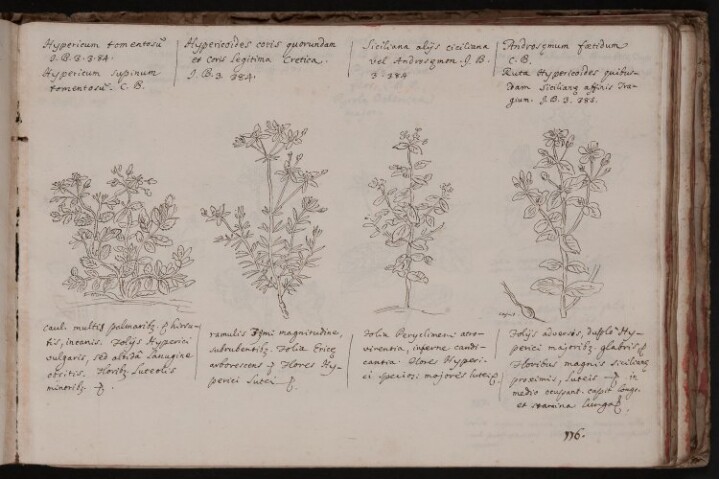 Hypericum tomentosū
J.B. 3. 384.
Hypericum supinum
tomentosū. C.B.
Hypericoides coris quorundam
et Coris legitima Cretica.
J.B. 3. 384.
Siciliana alijs ciciliana
vel Androsæmon. J.B.
3. 384
Androsæmum fœtidum
C.B.
Ruta Hypericoides quibus-
dam Sicilianæ affinis Tra-
gium. J.B. 3. 385.
caul. multis palmaribꝫ hirsu-
tis, incanis. Folijs Hyperici
vulgaris, sed albidâ lanugine
obsitis, floribꝫ Luteolis
minoribꝫ
ramulis magnitudine,
subrubentibꝫ. Folia Ericæ
arborescens Flores Hy-
perici Lutei
Folia Peryclimeni atro-
virentia, inferne candi-
cantia. Flores Hyperi-
ci speciosi majores lutei
Folijs adversis, Hy-
perici majoribꝫ glabris
Floribus magnis sicilianæ
proximis, luteis in
medio occupant. capit. longo.
et stamina longa
116.